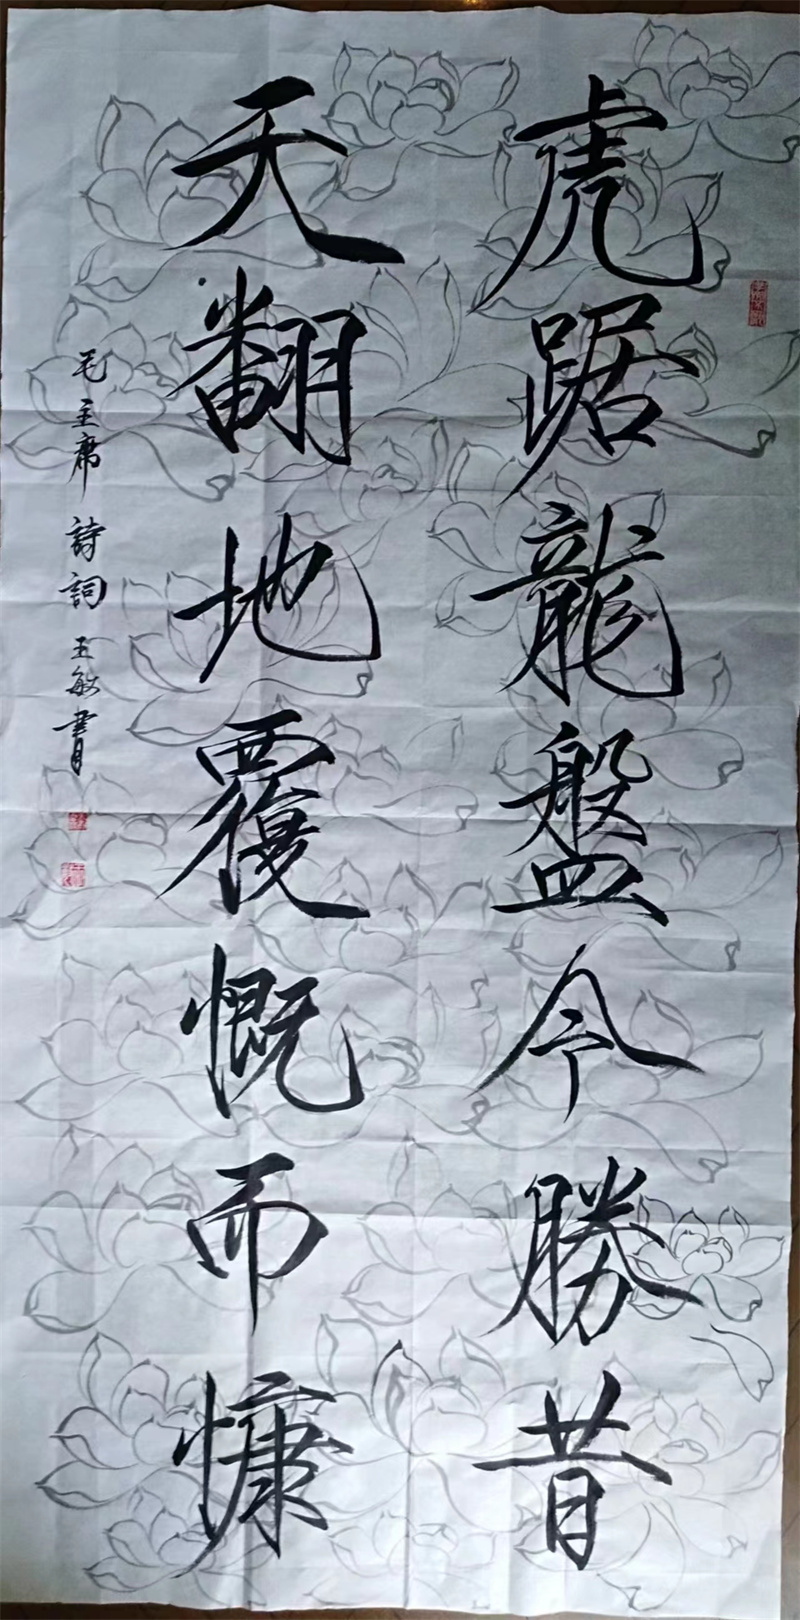 虎踞龍盤今勝昔
天翻地覆慨而慷
毛主席詩詞 王敏書